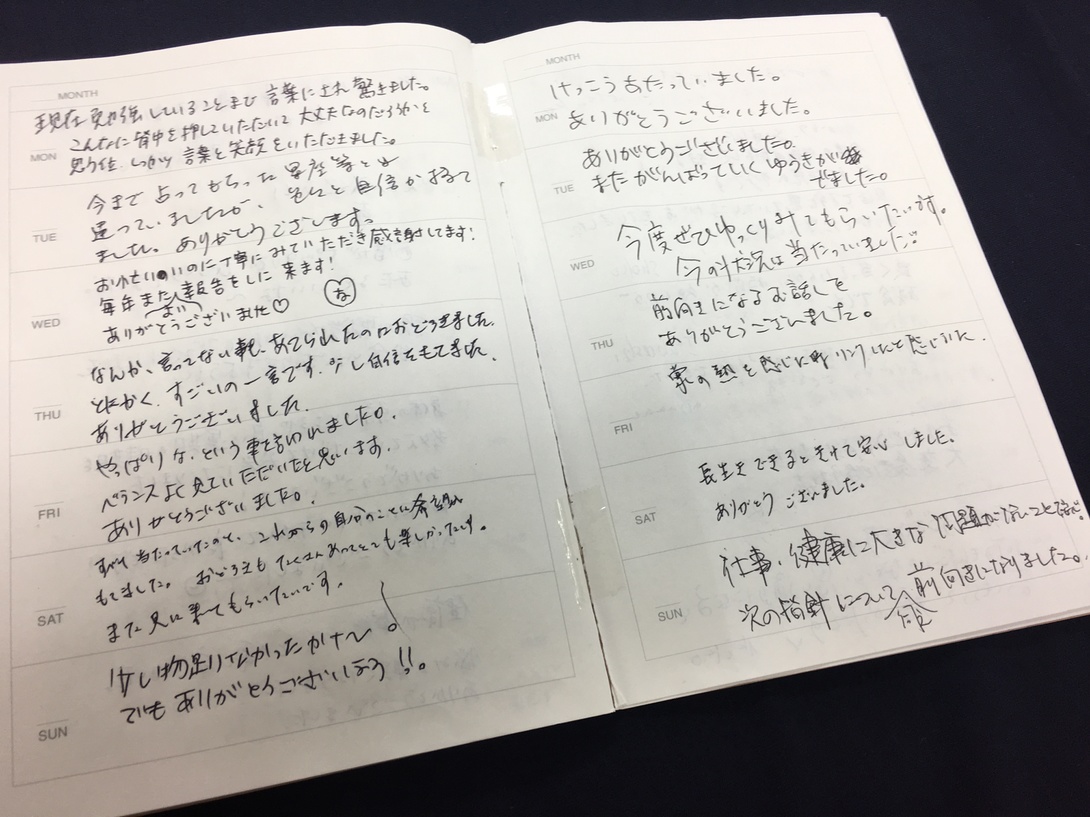 MONTH
現在勉強していることまで言葉にされ驚きました。
こんなに背中を押していただいて大丈夫なのだろうかと
思う位、しっかり言葉と笑顔をいただきました。
MON
今まで占ってもらった星座等とは
違っていましたが、 自信がもてて
ました。ありがとうございます。
TUE
おいそがしいのに丁寧にみていただき感謝してます!
毎年また報告をしに来ます!
まい
ありがとうございました♡
な
WED
なんか、言ってない事、あてられたのはおどろきました。
とにかく、すごいの一言です。少し自信をもてました。
ありがとうございました。
THU
やっぱりな、という事を言われました。
バランスよく見ていただいたと思います。
ありがとうございました。
FRI
すべて当たっていたのと、これからの自分のことに希望が
もてました。おどろきもたくさんあってとても楽しかったです。
また見に来てもらいたいです。
SAT
少し物足りなかったかナ〜。
でもありがとうございまう!!。
SUN
MONTH
けっこうあたっていました。
MON
ありがとうございました。
ありがとうございました。
またがんばっていくゆうきが
でました。
TUE
今度ぜひゆっくりみてもらいたいです。
今の状況は当たっていました
WED
前向きになるお話しを
ありがとうございました。
THU
家の熱を感じた リンクしたと感じした.
FRI
長生きできると聞けて安心しました。
ありがとうございました。
SAT
仕事、健康に大きな問題がないこと
次の指針について前向きになりました。
SUN